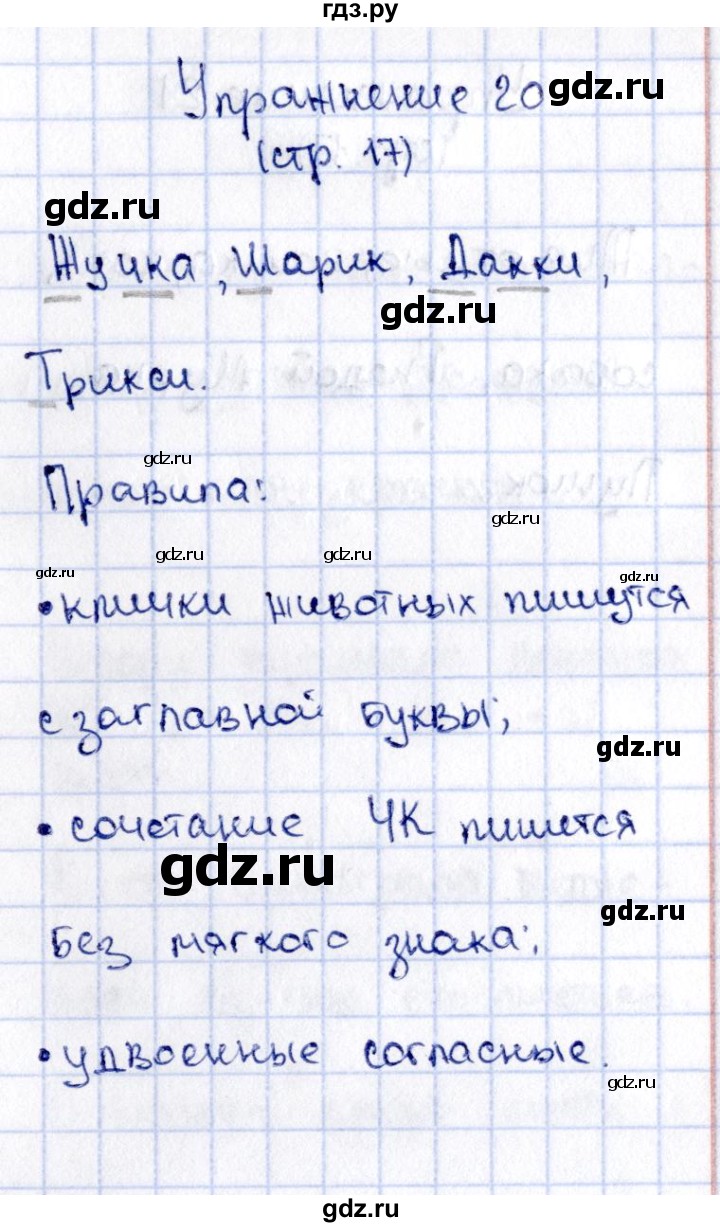 гдз.ру
Упражнение 20
gdz.ru
(стр. 17)
gdz.ru
Жучка, Шарик, Дакки,
gdz.ru
Трикси.
gdz.ru
Правила:
gdz.ru
gdz.ru gdz.ru
gdz.ru gdz.ru
• клички животных пишутся
с заглавной буквы;
gdz.ru
• сочетание ЧК пишется
gdz.ru
gdz.ru
без мягкого знака;
• удвоенные согласные.
gdz.ru
gdz.ru